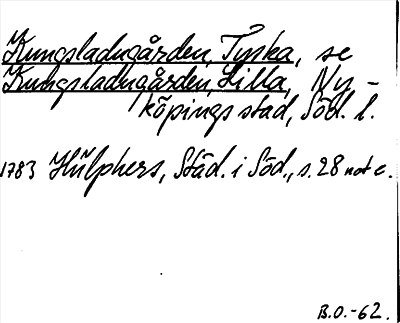 Kungsladugården, Tyska, se
Kungsladugården, Lilla, Ny-
köpings stad, Söd. l.
1783 Hülphers, Städ. i Söd., s. 28 not c.
B.O.-62.